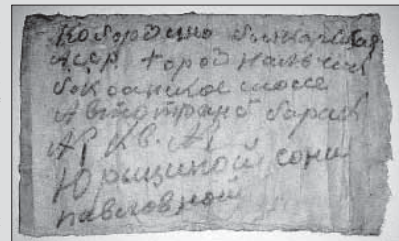 Кобордино балкарская
асср город налчик
баксанское шосе
Автотранс барак
№ кв. №
Юрьщиной сони
павловной